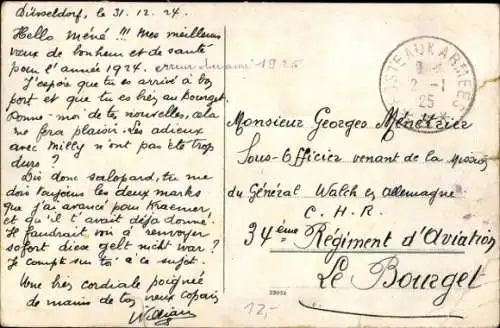 Düsseldorf, le 31.12.24.
Hello Méné !!! Mes meilleurs
vœux de bonheur et de santé
pour l'année 1924. erreur 1925
J'espère que tu es arrivé à bon
port et que tu es bien au Bourget.
Donne-moi de tes nouvelles, cela
me fera plaisir. Les adieux
avec Milly n'ont pas été trop
durs ?
Dis donc salopard, tu me
dois toujours les deux marks
que j'ai avancé pour Kraemer
et qu'il t'avait déjà donné.
Il faudrait voir à renvoyer
sofort diese gelt nicht war ?
Je compte sur toi à ce sujet.
Une très cordiale poignée
de mains de ton vieux copain
POSTE AUX ARMEES
2-1
25
Monsieur Georges Ménétrier
Sous-Officier venant de la Mission
du Général Walch en Allemagne
C.H.R.
34ème Régiment d'Aviation
Le Bourget
12,-